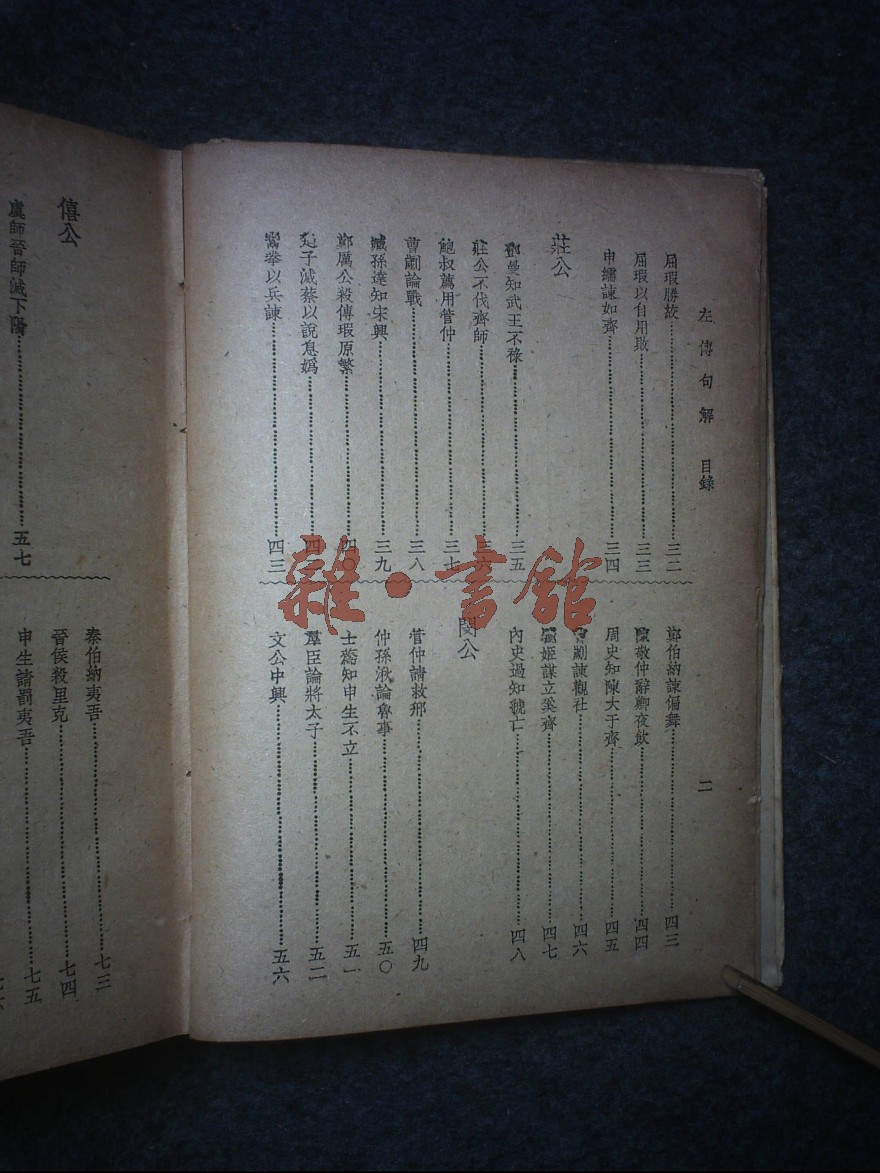 左傳句解 目錄 二
屈瑕勝鄖……三二
屈瑕以自用敗……三三
申繻諫如齊……三四
莊公
鄧曼知武王不祿……三五
莊公不伐齊師……三六
鮑叔薦用管仲……三七
曹劌論戰……三八
臧孫達知宋興……三九
鄭厲公殺傅瑕原繁……四〇
楚子滅蔡以說息嬀……四
鬻拳以兵諫……四三
鄭伯納諫偏舞……四三
陳敬仲辭卿夜飲……四四
周史知陳大于齊……四五
曹劌諫觀社……四六
驪姬謀立奚齊……四七
內史過知虢亡……四八
閔公
管仲請救邢……四九
仲孫湫論魯事……五〇
士蔿知申生不立……五一
羣臣論將太子……五二
文公中興……五六
僖公
虞師晉師滅下陽……五七
秦伯納夷吾……七三
晉侯殺里克……七四
申生請罰夷吾……七五
雜·書館